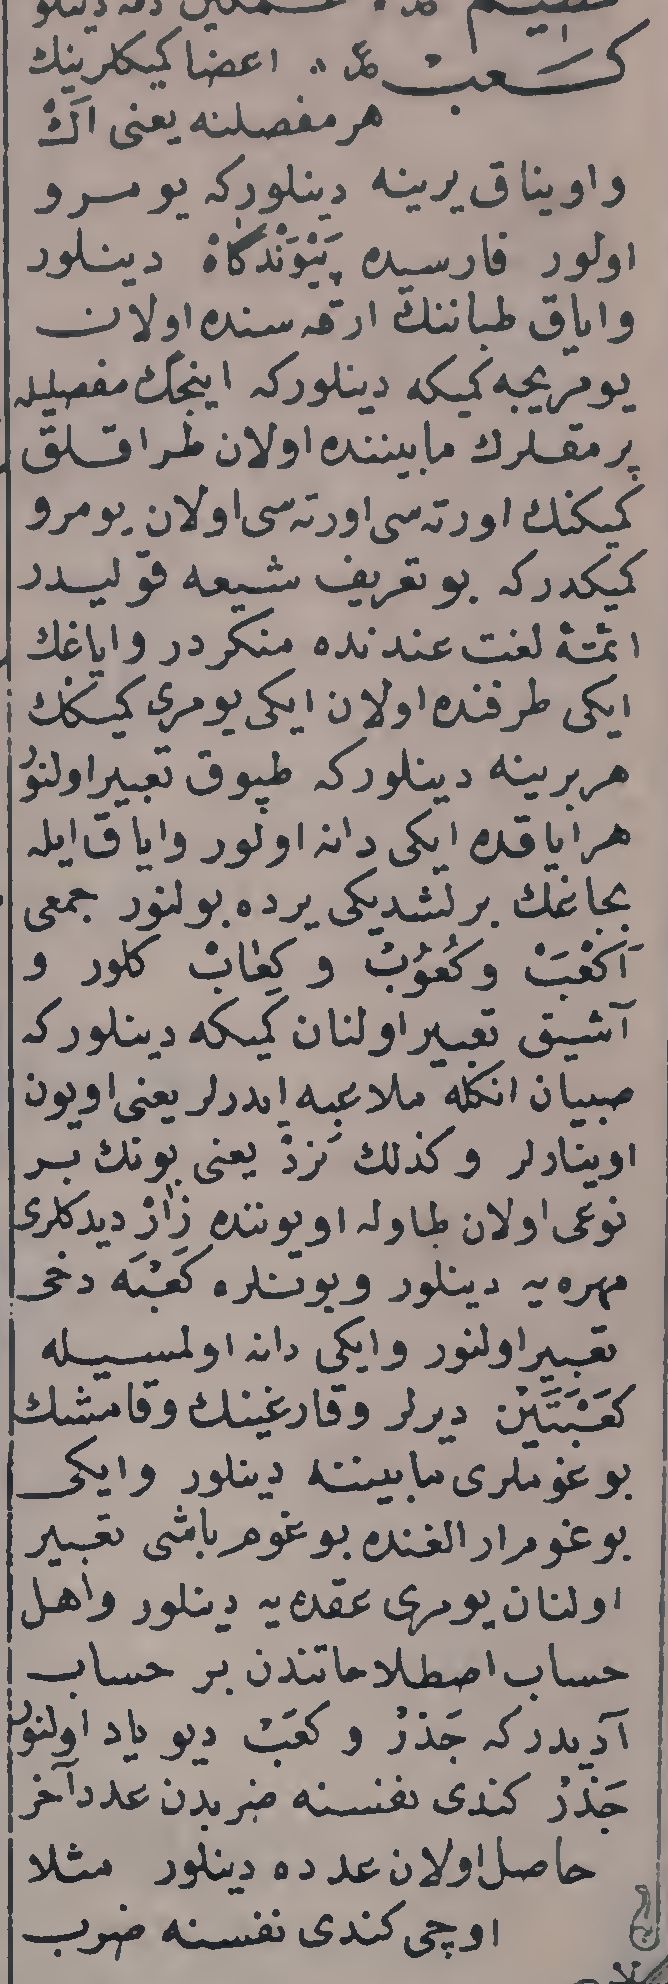 كعب ع ؞ اعضا كيكلرينك
هر مفصلنه يعنى اك
و اويناق يرينه دينلوركه يومرو
اولور فارسيده پَيْوَنْدْكَاهْ دينلور
و اياق طباننك ارقه سنده اولان
يومريجه كميكه دينلوركه اينجك مفصليله
پرمقلرك مابيننده اولان طراقلق
كميكنك اورته سى اورته سى اولان يومرو
كميكدركه بو تعريف شيعه قوليدر
ائمّۀ لغت عندنده منكردر و اياغك
ايكى طرفنده اولان ايكى يومرى كميكك
هر برينه دينلوركه طپوق تعبير اولنور
هر اياقده ايكى دانه اولور و اياق ايله
بجاغك برلشديكى يرده بولنور جمعى
اَكْعُبْ و كُعُوبْ و كِعَابْ كلور و
آشيق تعبير اولنان كميكه دينلوركه
صبيان انكله ملاعبه ايدرلر يعنى اويون
اوينارلر و كذلك نَرْدْ يعنى بونك بر
نوعى اولان طاوله اويوننده زَارْ ديدكلرى
مهره يه دينلور و بونلره كَعْبَه دخى
تعبير اولنور و ايكى دانه اولمسيله
كَعْبَتَيْن ديرلر و قارغينك و قامشك
بوغوملرى مابيننه دينلور و ايكى
بوغوم ارالغنده بوغوم باشى تعبير
اولنان يومرى عقده يه دينلور و اهل
حساب اصطلاحاتندن بر حساب
آديدركه جَذْرْ و كَعْبْ ديو ياد اولنور
جَذْرْ كندى نفسنه ضربدن عدد آخر
حاصل اولان عدده دينلور مثلا
اوچى كندى نفسنه ضرب